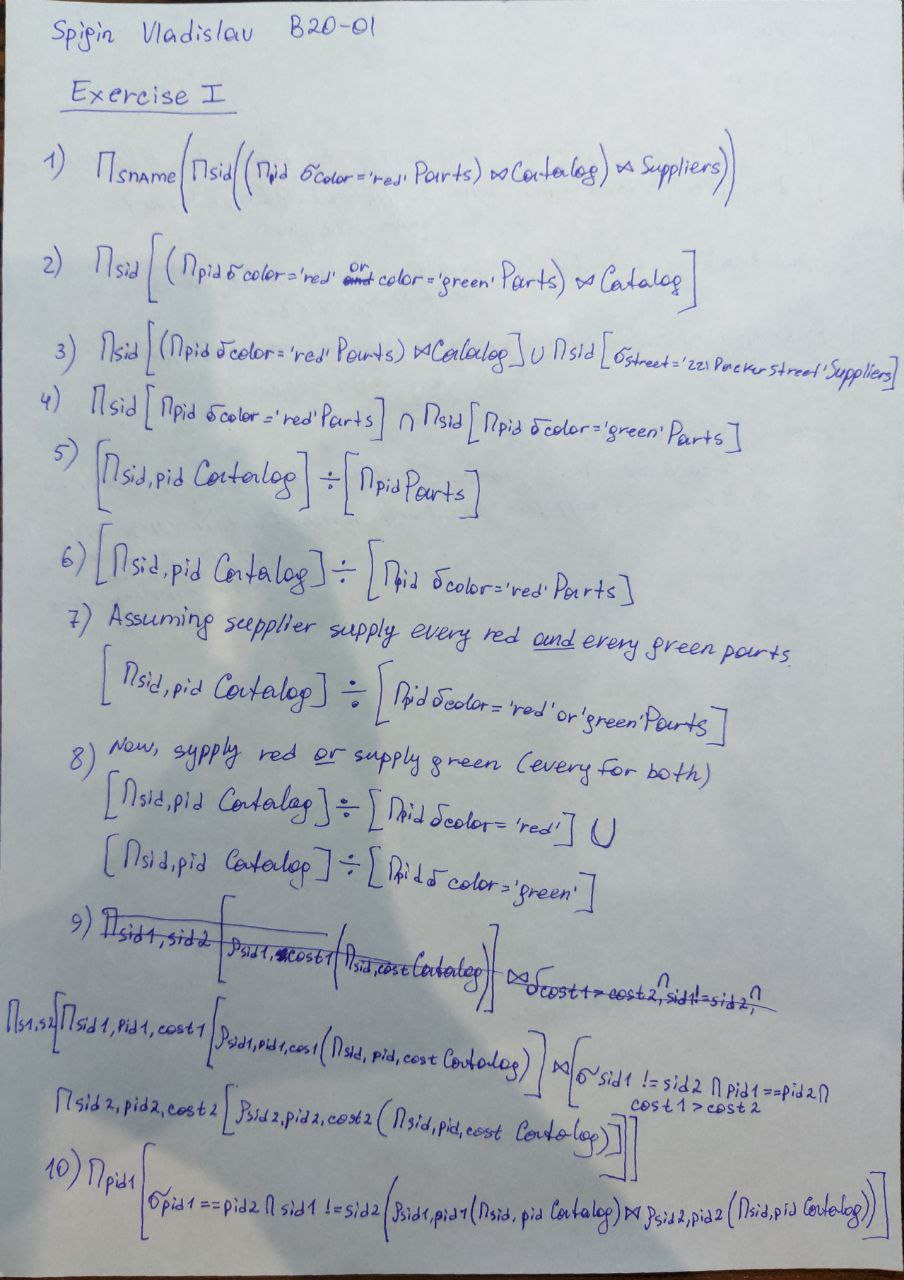 Spigin Vladislav B20-01
Exercise I
1) Πsname(Πsid((Πpid σcolor='red' Parts) ⋈ Catalog) ⋈ Suppliers))
2) Πsid[(Πpid σcolor='red' or color='green' Parts) ⋈ Catalog]
3) Πsid[(Πpid σcolor='red' Parts) ⋈ Catalog] ∪ Πsid[σstreet='221 Packer Street' Suppliers]
4) Πsid[Πpid σcolor='red' Parts] ∩ Πsid[Πpid σcolor='green' Parts]
5) [Πsid,pid Catalog] ÷ [Πpid Parts]
6) [Πsid,pid Catalog] ÷ [Πpid σcolor='red' Parts]
7) Assuming supplier supply every red and every green parts.
[Πsid,pid Catalog] ÷ [Πpid σcolor='red' or 'green' Parts]
8) Now, sypply red or supply green (every for both)
[Πsid,pid Catalog] ÷ [Πpid σcolor='red'] ∪
[Πsid,pid Catalog] ÷ [Πpid σ color='green']
9) Πsid1,sid2[ρsid1,cost1(Πsid,cost Catalog)] ⋈ σcost1>cost2, ∩ sid1!=sid2, ∩
Πs1,s2[Πsid1,pid1,cost1[ρsid1,pid1,cos1(Πsid,pid,cost Catalog)] ⋈ [σsid1 != sid2 ∩ pid1==pid2 ∩
cost1 > cost2
Πsid2,pid2,cost2[ρsid2,pid2,cost2(Πsid,pid,cost Catalog)]]]
10) Πpid1[σpid1==pid2 ∩ sid1 != sid2(ρsid1,pid1(Πsid,pid Catalog) ⋈ ρsid2,pid2(Πsid,pid Catalog))]